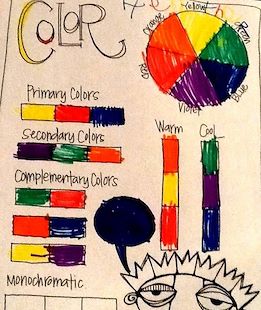 COLOR
Yellow
Orange
Green
Red
Blue
Violet
Primary Colors
Warm
Cool
Secondary Colors
Complementary Colors
Monochromatic